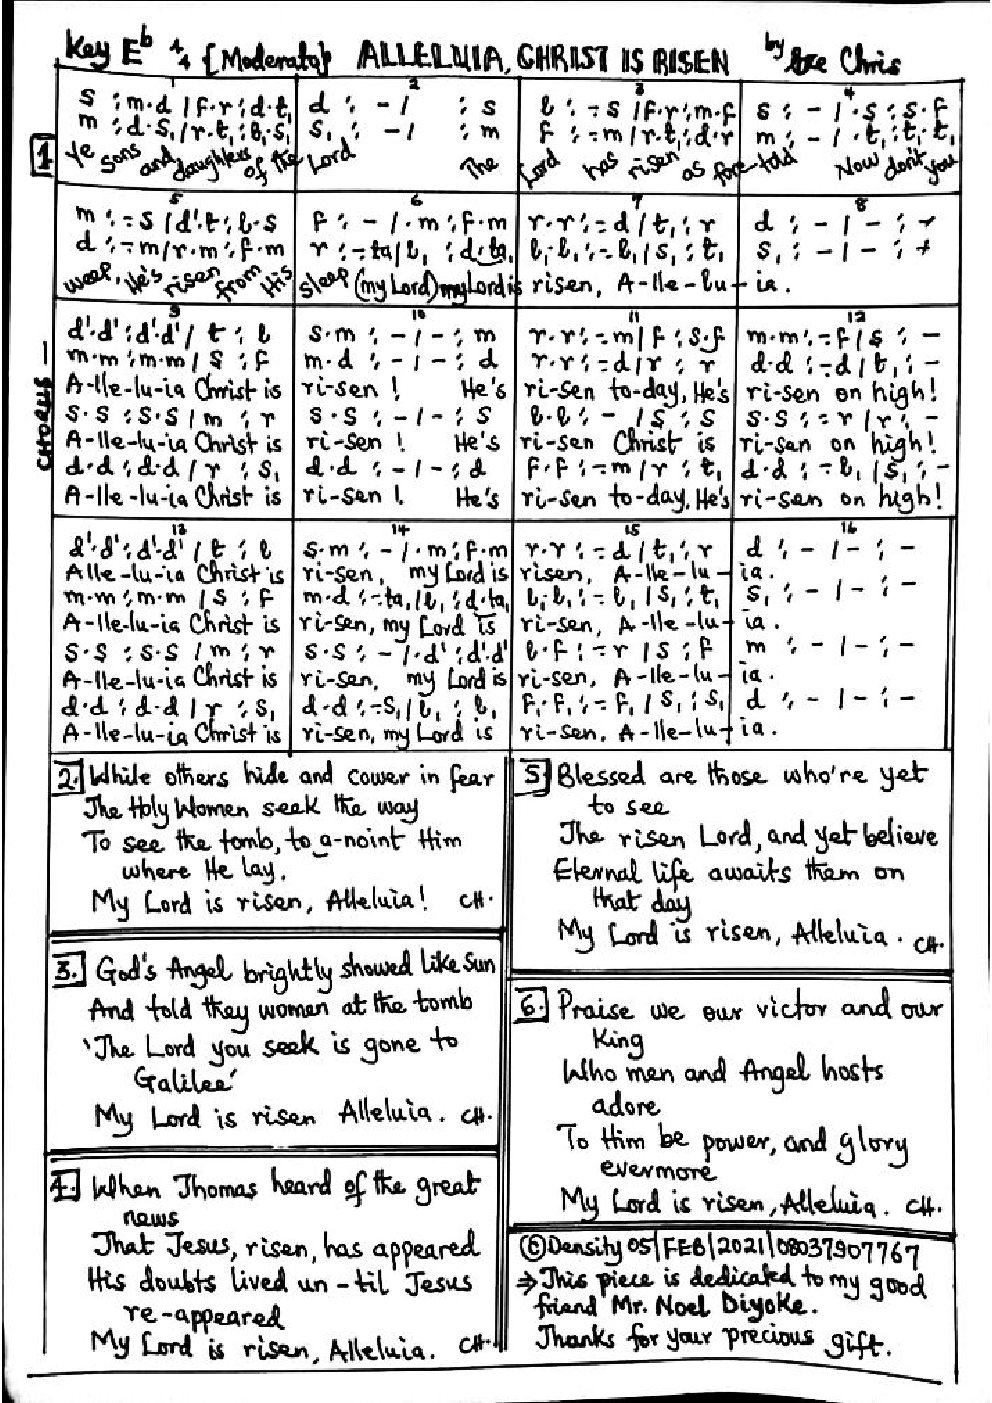 Key Eb 4/4 {Moderato} ALLELUIA, CHRIST IS RISEN by Eze Chris
1 2 3 4
s :m.d /f.r :d.t, d : - / : s l : -.s /f.r :m.f s : - / .s :s.f
1
m :d.s, /r.t, :l,.s, s, : - / : m f : -.m /r.t, :d.r m : - / .t, :t,.t,
Ye sons and daughters of the Lord The Lord has risen as fore-told Now don't you
5 6 7 8
m : -.s /d'.t :l.s f : - / .m :f.m r.r : -.d /t, : r d : - / - :
d : -.m /r.m :f.m r : -.ta,/l, :d.ta, l,.l, : -.l, /s, : t, s, : - / - :
weep, He's risen from His sleep (my Lord) my Lord is risen, A-lle-lu-ia.
9 10 11 12
CHORUS
d'.d' :d'.d' / t : l s.m : - / - : m r.r : -.m / f : s.f m.m : -.f / s : -
m.m :m.m / s : f m.d : - / - : d r.r : -.d / r : r d.d : -.d / t, : -
A-lle-lu-ia Christ is ri-sen! He's ri-sen to-day, He's ri-sen on high!
s.s :s.s / m : r s.s : - / - : s l.l : - / s : s s.s : -.r / r : -
A-lle-lu-ia Christ is ri-sen! He's ri-sen Christ is ri-sen on high!
d.d :d.d / r : s, d.d : - / - : d f.f : -.m / r : t, d.d : -.l, / s, : -
A-lle-lu-ia Christ is ri-sen! He's ri-sen to-day, He's ri-sen on high!
13 14 15 16
d'.d' :d'.d' / t : l s.m : - / .m :f.m r.r : -.d / t, : r d : - / - : -
Alle-lu-ia Christ is ri-sen, my Lord is risen, A-lle-lu-ia.
m.m :m.m / s : f m.d : -.ta, / l, :d.ta, l,.l, : -.l, / s, : t, s, : - / - : -
A-lle-lu-ia Christ is ri-sen, my Lord is ri-sen, A-lle-lu-ia.
s.s :s.s / m : r s.s : - / .d' :d'.d' l.f : -.r / s : f m : - / - : -
A-lle-lu-ia Christ is ri-sen, my Lord is ri-sen, A-lle-lu-ia.
d.d :d.d / r : s, d.d : -.s, / l, : l, f,.f, : -.f, / s, : s, d : - / - : -
A-lle-lu-ia Christ is ri-sen, my Lord is ri-sen, A-lle-lu-ia.
2. While others hide and cower in fear
The Holy Women seek the way
To see the tomb, to a-noint Him
where He lay.
My Lord is risen, Alleluia! CH.
3. God's Angel brightly showed like Sun
And told they women at the tomb
'The Lord you seek is gone to
Galilee'
My Lord is risen Alleluia. CH.
4. When Thomas heard of the great
news
That Jesus, risen, has appeared
His doubts lived un-til Jesus
re-appeared
My Lord is risen, Alleluia. CH.
5. Blessed are those who're yet
to see
The risen Lord, and yet believe
Eternal life awaits them on
that day
My Lord is risen, Alleluia. CH.
6. Praise we our victor and our
King
Who men and Angel hosts
adore
To Him be power, and glory
evermore
My Lord is risen, Alleluia. CH.
© Density 05/FEB/2021/08037907767
⇒ This piece is dedicated to my good
friend Mr. Noel Diyoke.
Thanks for your precious gift.